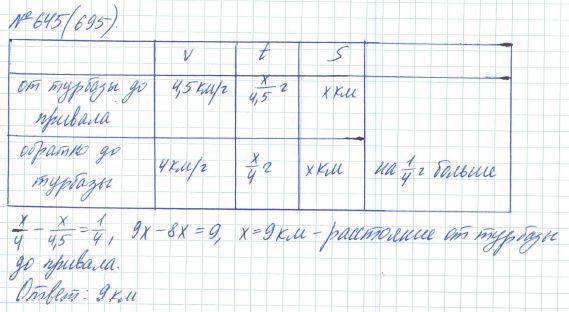 № 645(695).
v t S
от турбазы до привала 4,5км/г x/4,5 г x км
обратно до турбазы 4км/г x/4 г x км на 1/4 г больше
x/4 - x/4,5 = 1/4, 9x-8x=9, x=9км-расстояние от турбазы
до привала.
Ответ: 9км